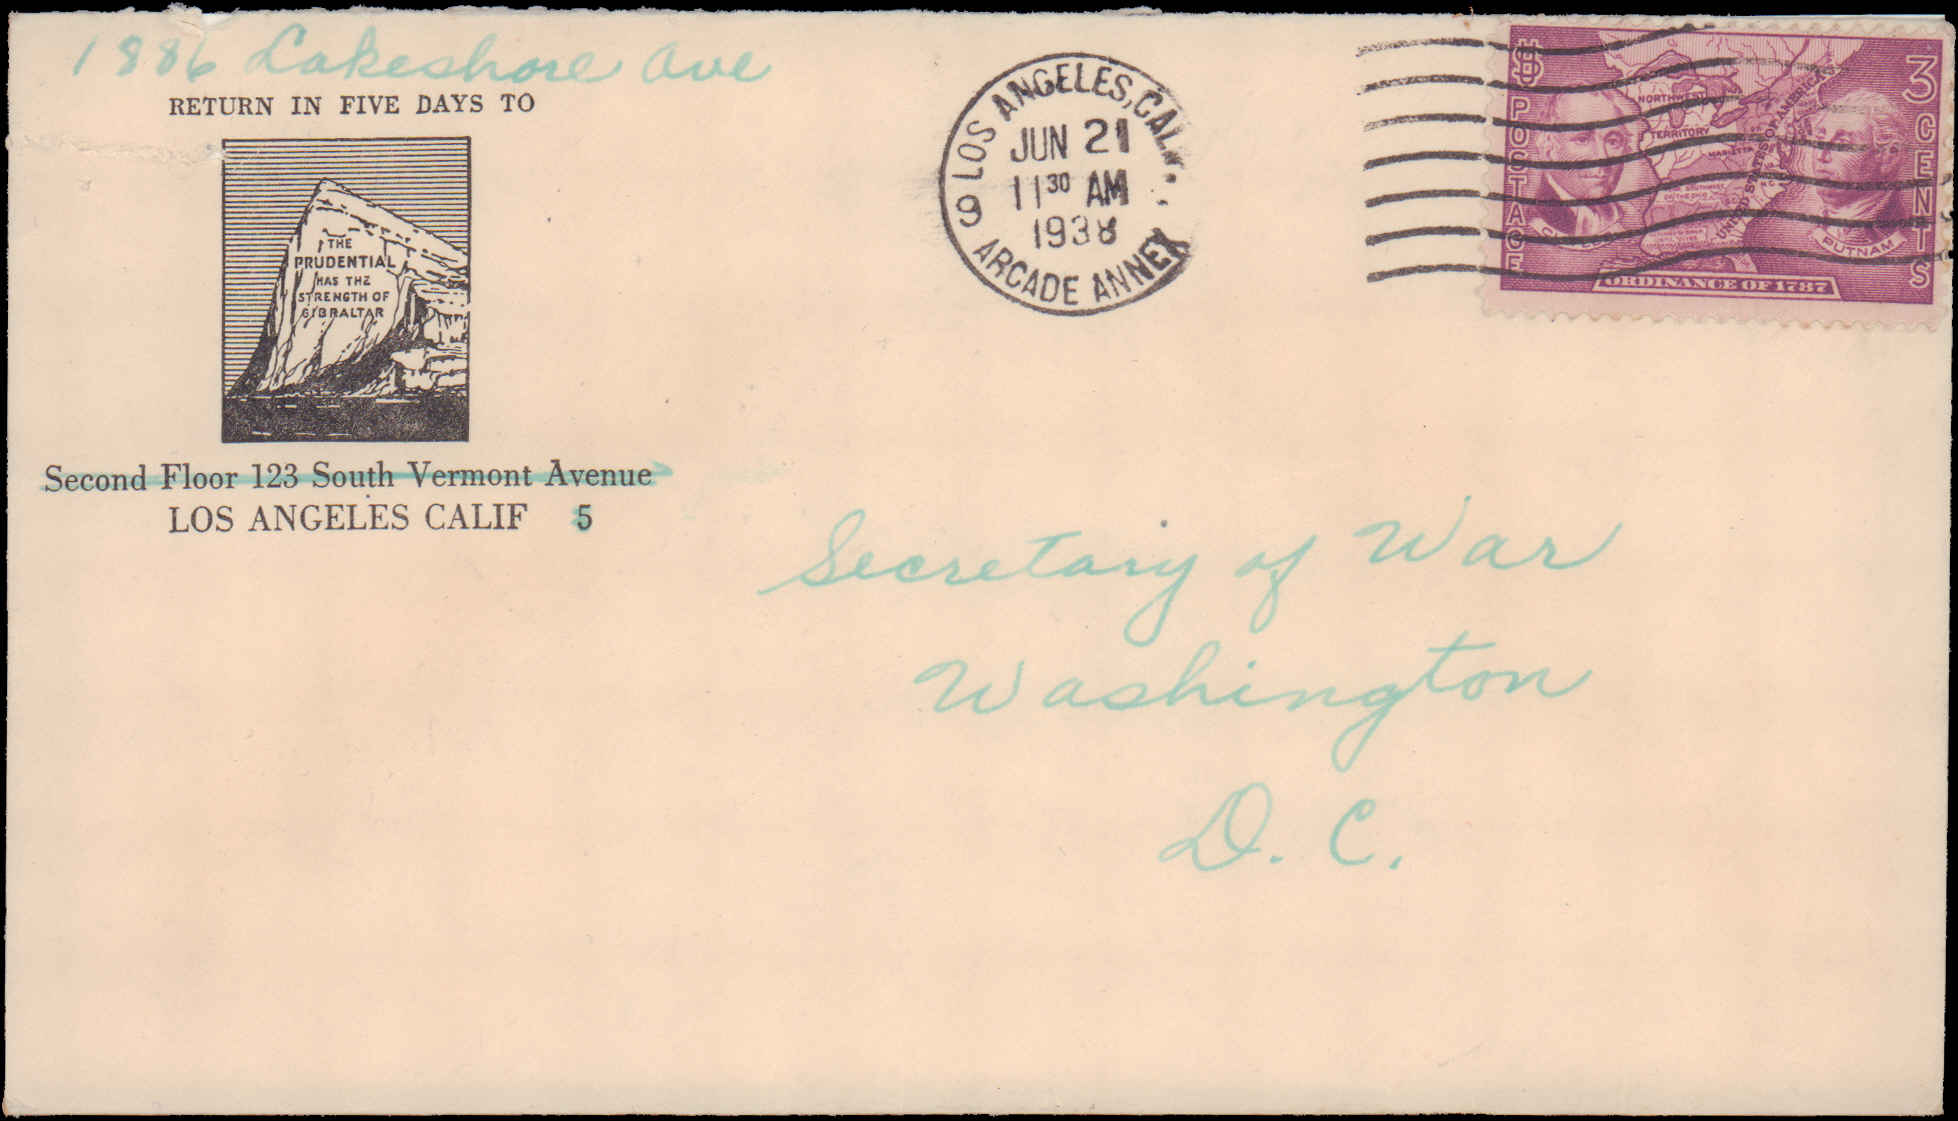 1886 Lakeshore Ave
RETURN IN FIVE DAYS TO
THE
PRUDENTIAL
HAS THE
STRENGTH OF
GIBRALTAR
Second Floor 123 South Vermont Avenue
LOS ANGELES CALIF 5
LOS ANGELES, CALIF.
JUN 21
11 30 AM
1938
9 ARCADE ANNEX
US POSTAGE
3 CENTS
NORTHWEST
TERRITORY
MARIETTA
UNITED STATES OF AMERICA
PUTNAM
ORDINANCE OF 1787
Secretary of War
Washington
D. C.